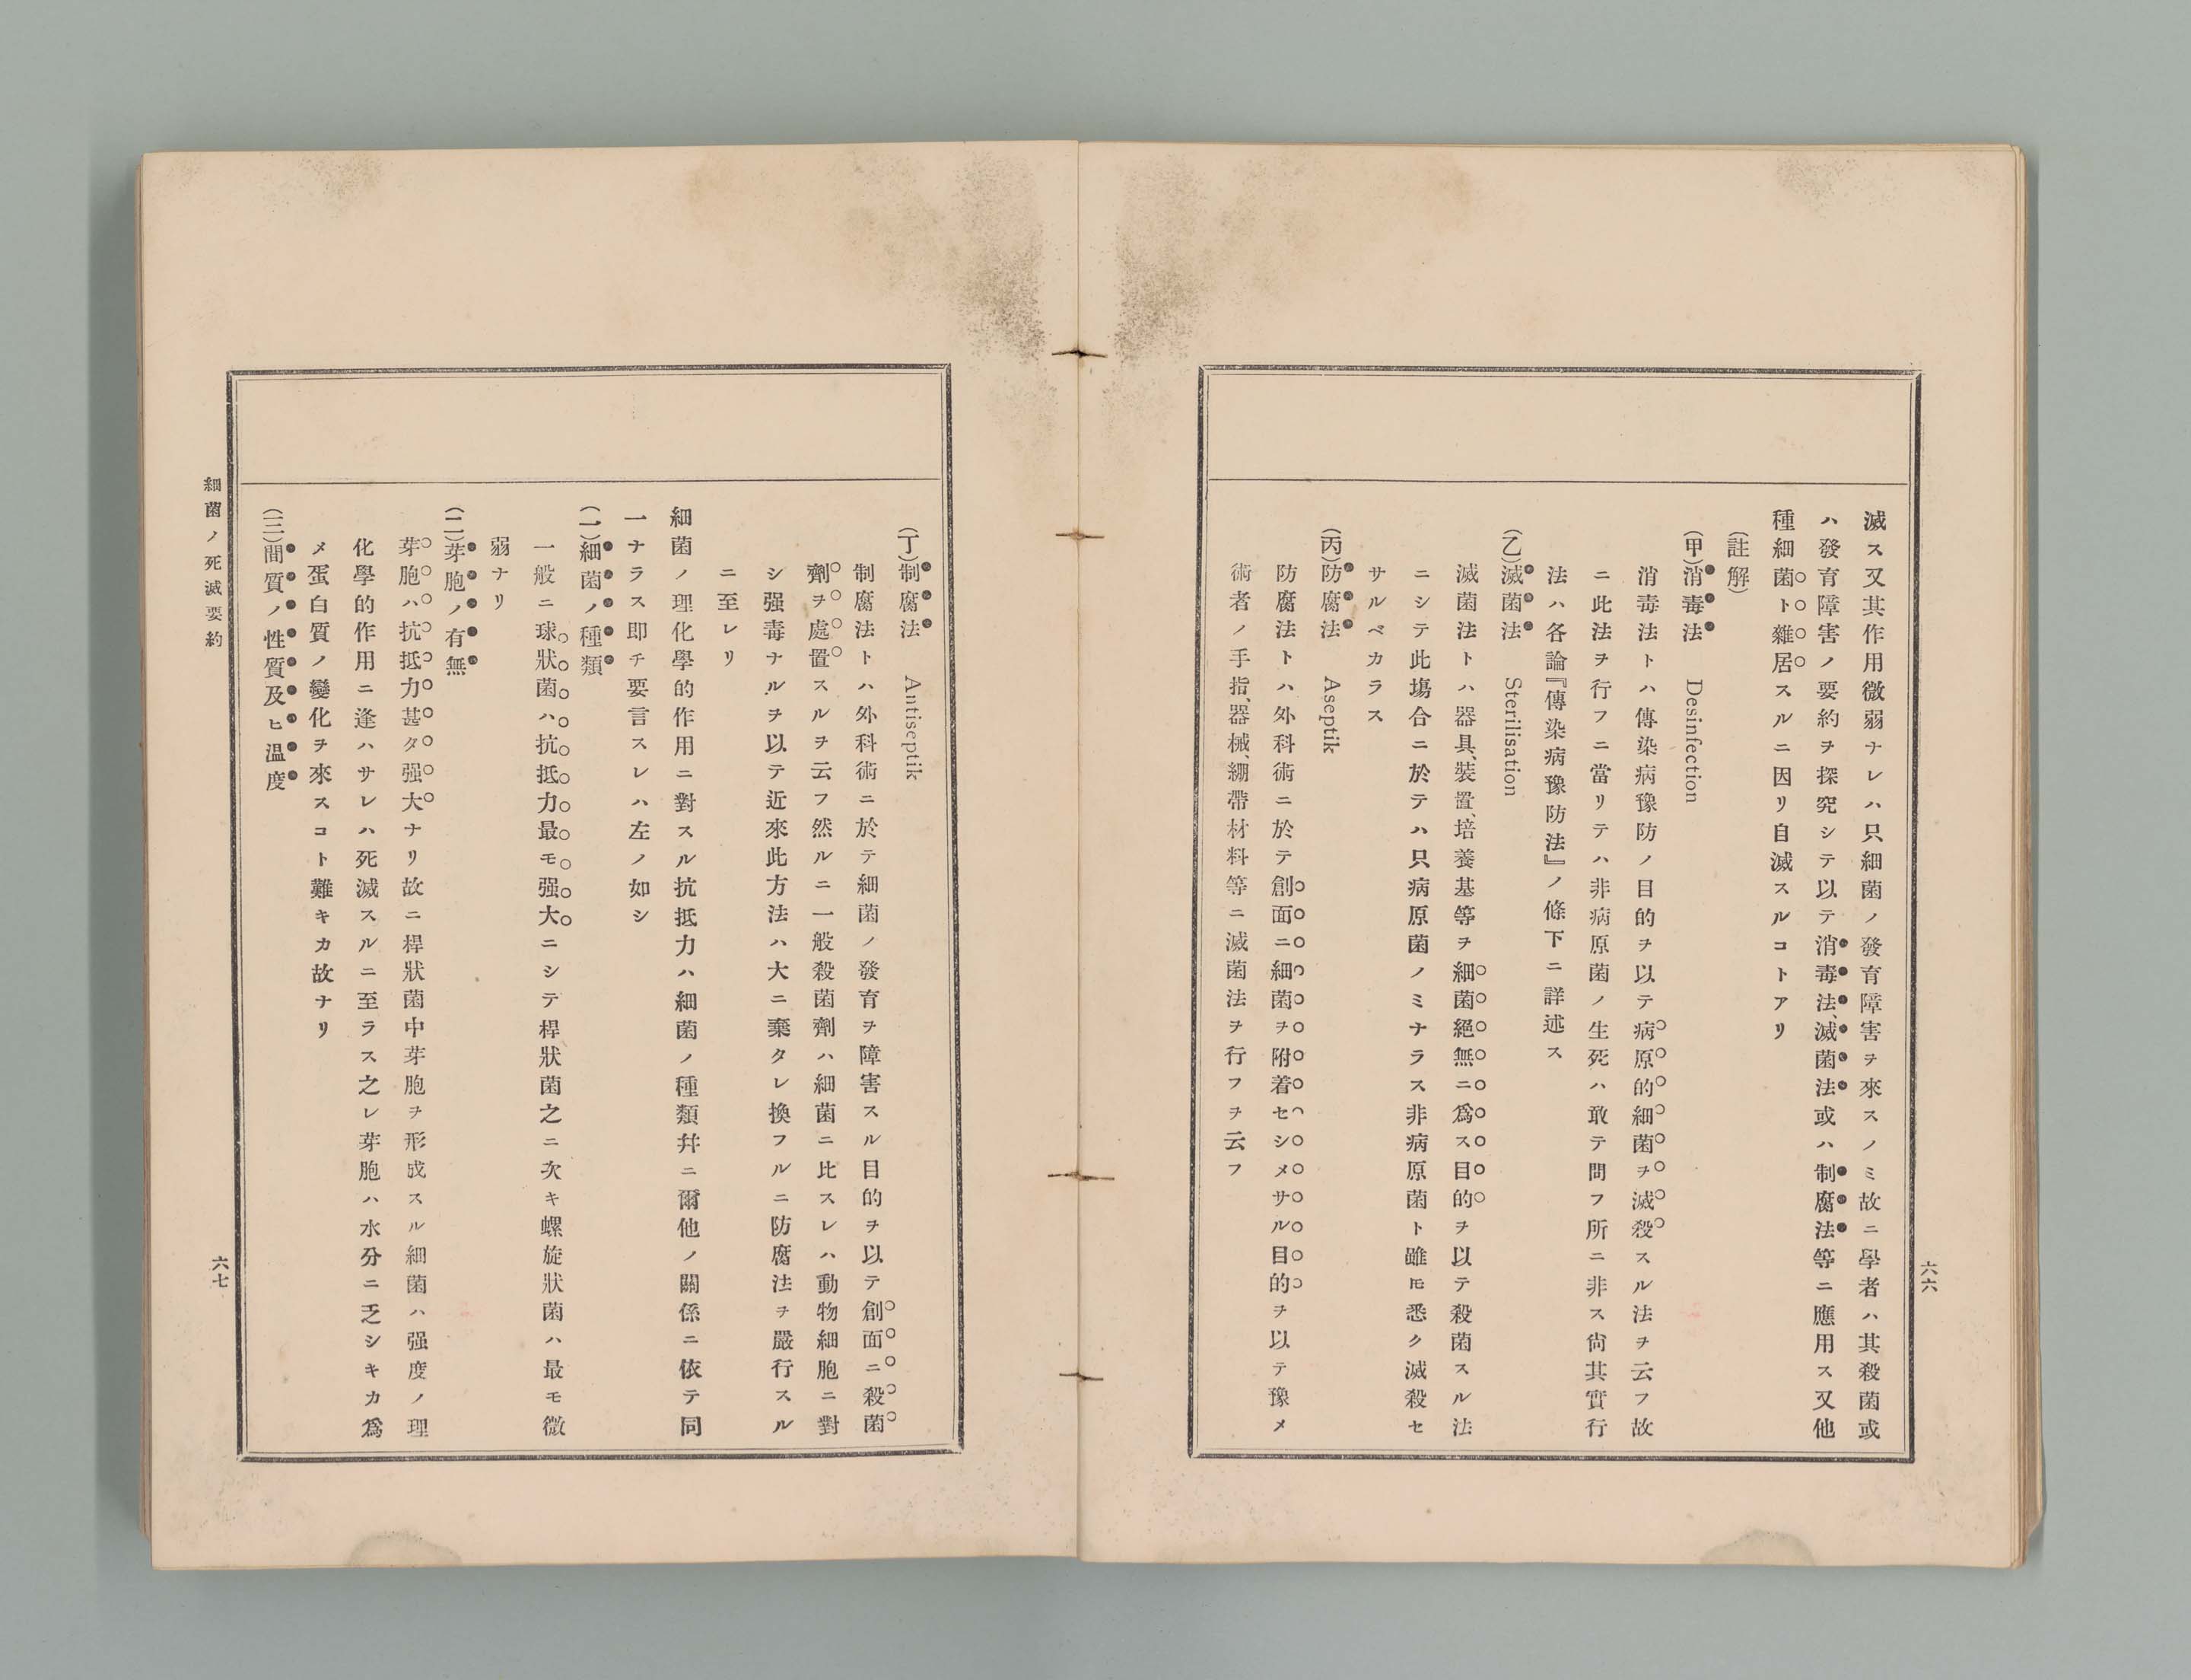 滅ス又其作用微弱ナレハ只細菌ノ發育障害ヲ來スノミ故ニ學者ハ其殺菌或
ハ發育障害ノ要約ヲ探究シテ以テ消毒法、滅菌法或ハ制腐法等ニ應用ス又他
種細菌ト雜居スルニ因リ自滅スルコトアリ
(註解)
(甲)消毒法 Desinfection
消毒法トハ傳染病豫防ノ目的ヲ以テ病原的細菌ヲ滅殺スル法ヲ云フ故
ニ此法ヲ行フニ當リテハ非病原菌ノ生死ハ敢テ問フ所ニ非ス尙其實行
法ハ各論『傳染病豫防法』ノ條下ニ詳述ス
(乙)滅菌法 Sterilisation
滅菌法トハ器具、裝置、培養基等ヲ細菌絕無ニ爲ス目的ヲ以テ殺菌スル法
ニシテ此塲合ニ於テハ只病原菌ノミナラス非病原菌ト雖モ悉ク滅殺セ
サルベカラス
(丙)防腐法 Aseptik
防腐法トハ外科術ニ於テ創面ニ細菌ヲ附着セシメサル目的ヲ以テ豫メ
術者ノ手指、器械、繃帶材料等ニ滅菌法ヲ行フヲ云フ
六六
(丁)制腐法 Antiseptik
制腐法トハ外科術ニ於テ細菌ノ發育ヲ障害スル目的ヲ以テ創面ニ殺菌
劑ヲ處置スルヲ云フ然ルニ一般殺菌劑ハ細菌ニ比スレハ動物細胞ニ對
シ强毒ナルヲ以テ近來此方法ハ大ニ棄タレ換フルニ防腐法ヲ嚴行スル
ニ至レリ
細菌ノ理化學的作用ニ對スル抗抵力ハ細菌ノ種類幷ニ爾他ノ關係ニ依テ同
一ナラス即チ要言スレハ左ノ如シ
(一)細菌ノ種類
一般ニ球狀菌ハ抗抵力最モ强大ニシテ桿狀菌之ニ次キ螺旋狀菌ハ最モ微
弱ナリ
(二)芽胞ノ有無
芽胞ハ抗抵力甚タ强大ナリ故ニ桿狀菌中芽胞ヲ形成スル細菌ハ强度ノ理
化學的作用ニ逢ハサレハ死滅スルニ至ラス之レ芽胞ハ水分ニ乏シキカ爲
メ蛋白質ノ變化ヲ來スコト難キカ故ナリ
(三)間質ノ性質及ヒ温度
細菌ノ死滅要約
六七